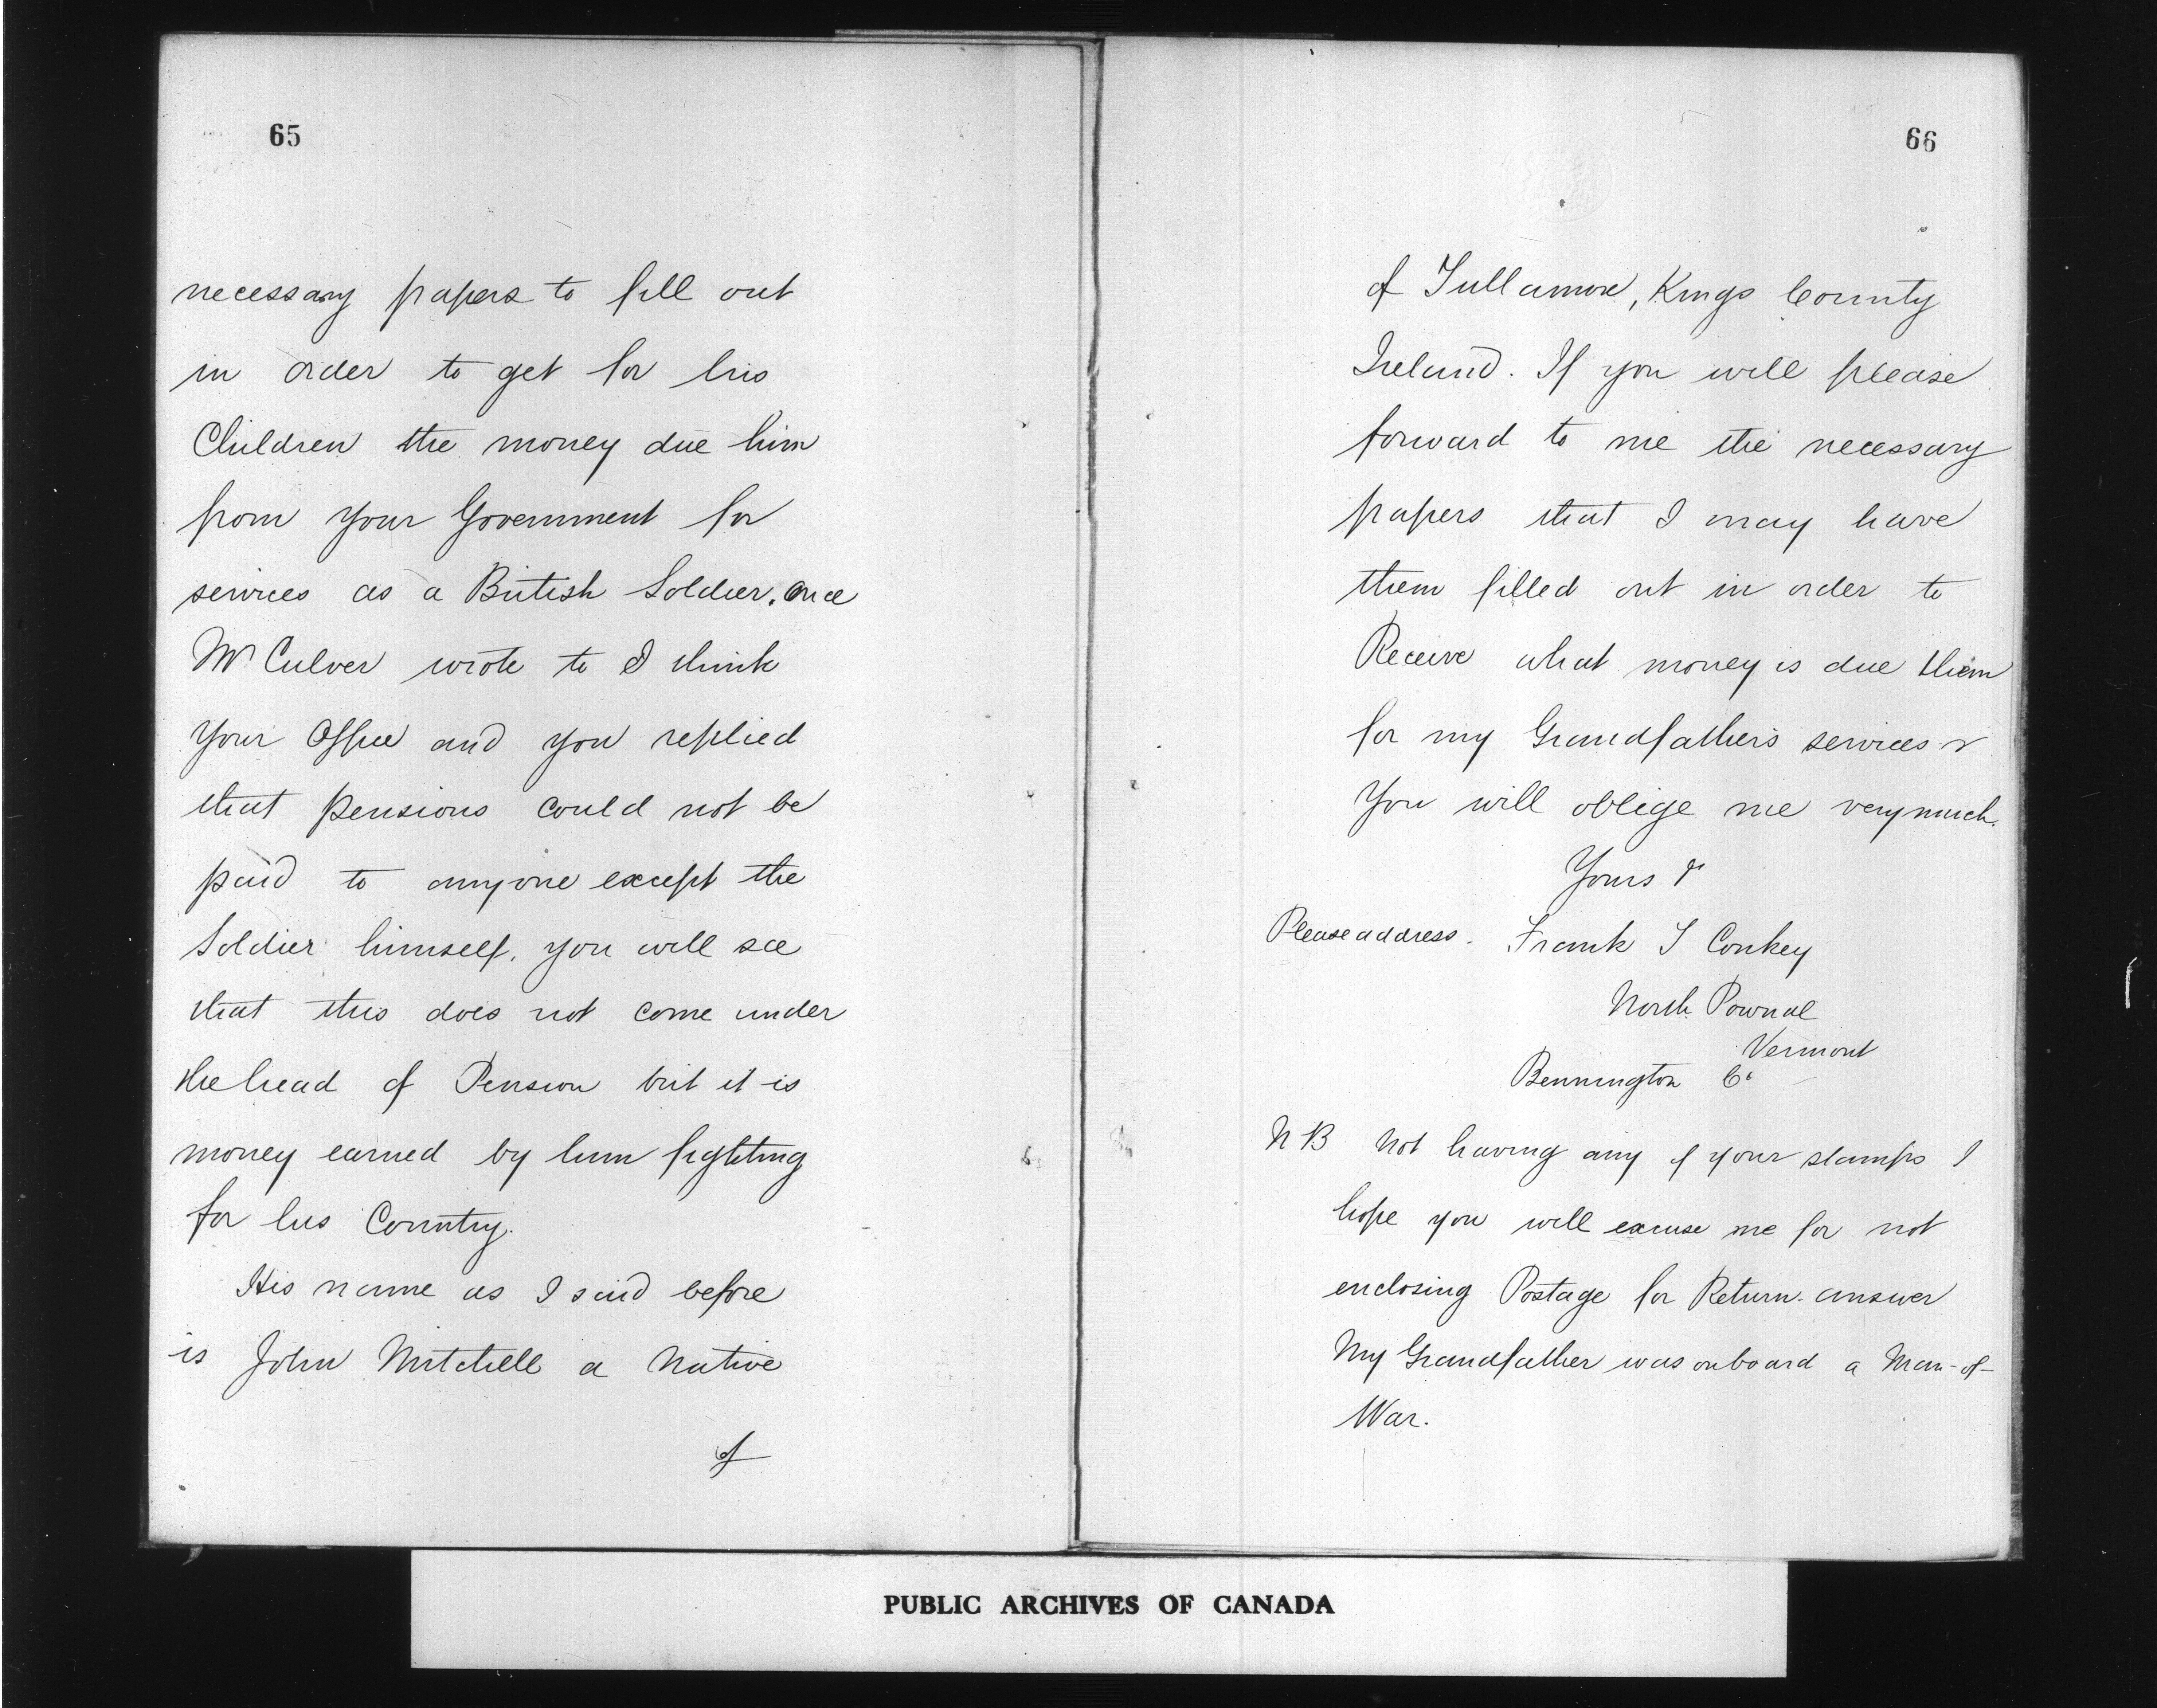 65
necessary papers to fill out
in order to get for his
Children the money due him
from your Government for
services as a British Soldier. once
Mr Culver wrote to I think
your Office and you replied
that pensions could not be
paid to anyone except the
Soldier himself. you will see
that this does not come under
the head of Pension but it is
money earned by him fighting
for his Country.
His name as I said before
is John Mitchell a Native
of
66
of Tullamore, Kings County
Ireland. If you will please
forward to me the necessary
papers that I may have
them filled out in order to
Receive what money is due them
for my Grandfather's services &
You will oblige me very much.
Yours &c
Please address. Frank T Conkey
North Pownal
Vermont
Bennington Co
N B Not having any of your stamps I
hope you will excuse me for not
enclosing Postage for Return answer
My Grandfather was onboard a Man-of-
War.
PUBLIC ARCHIVES OF CANADA